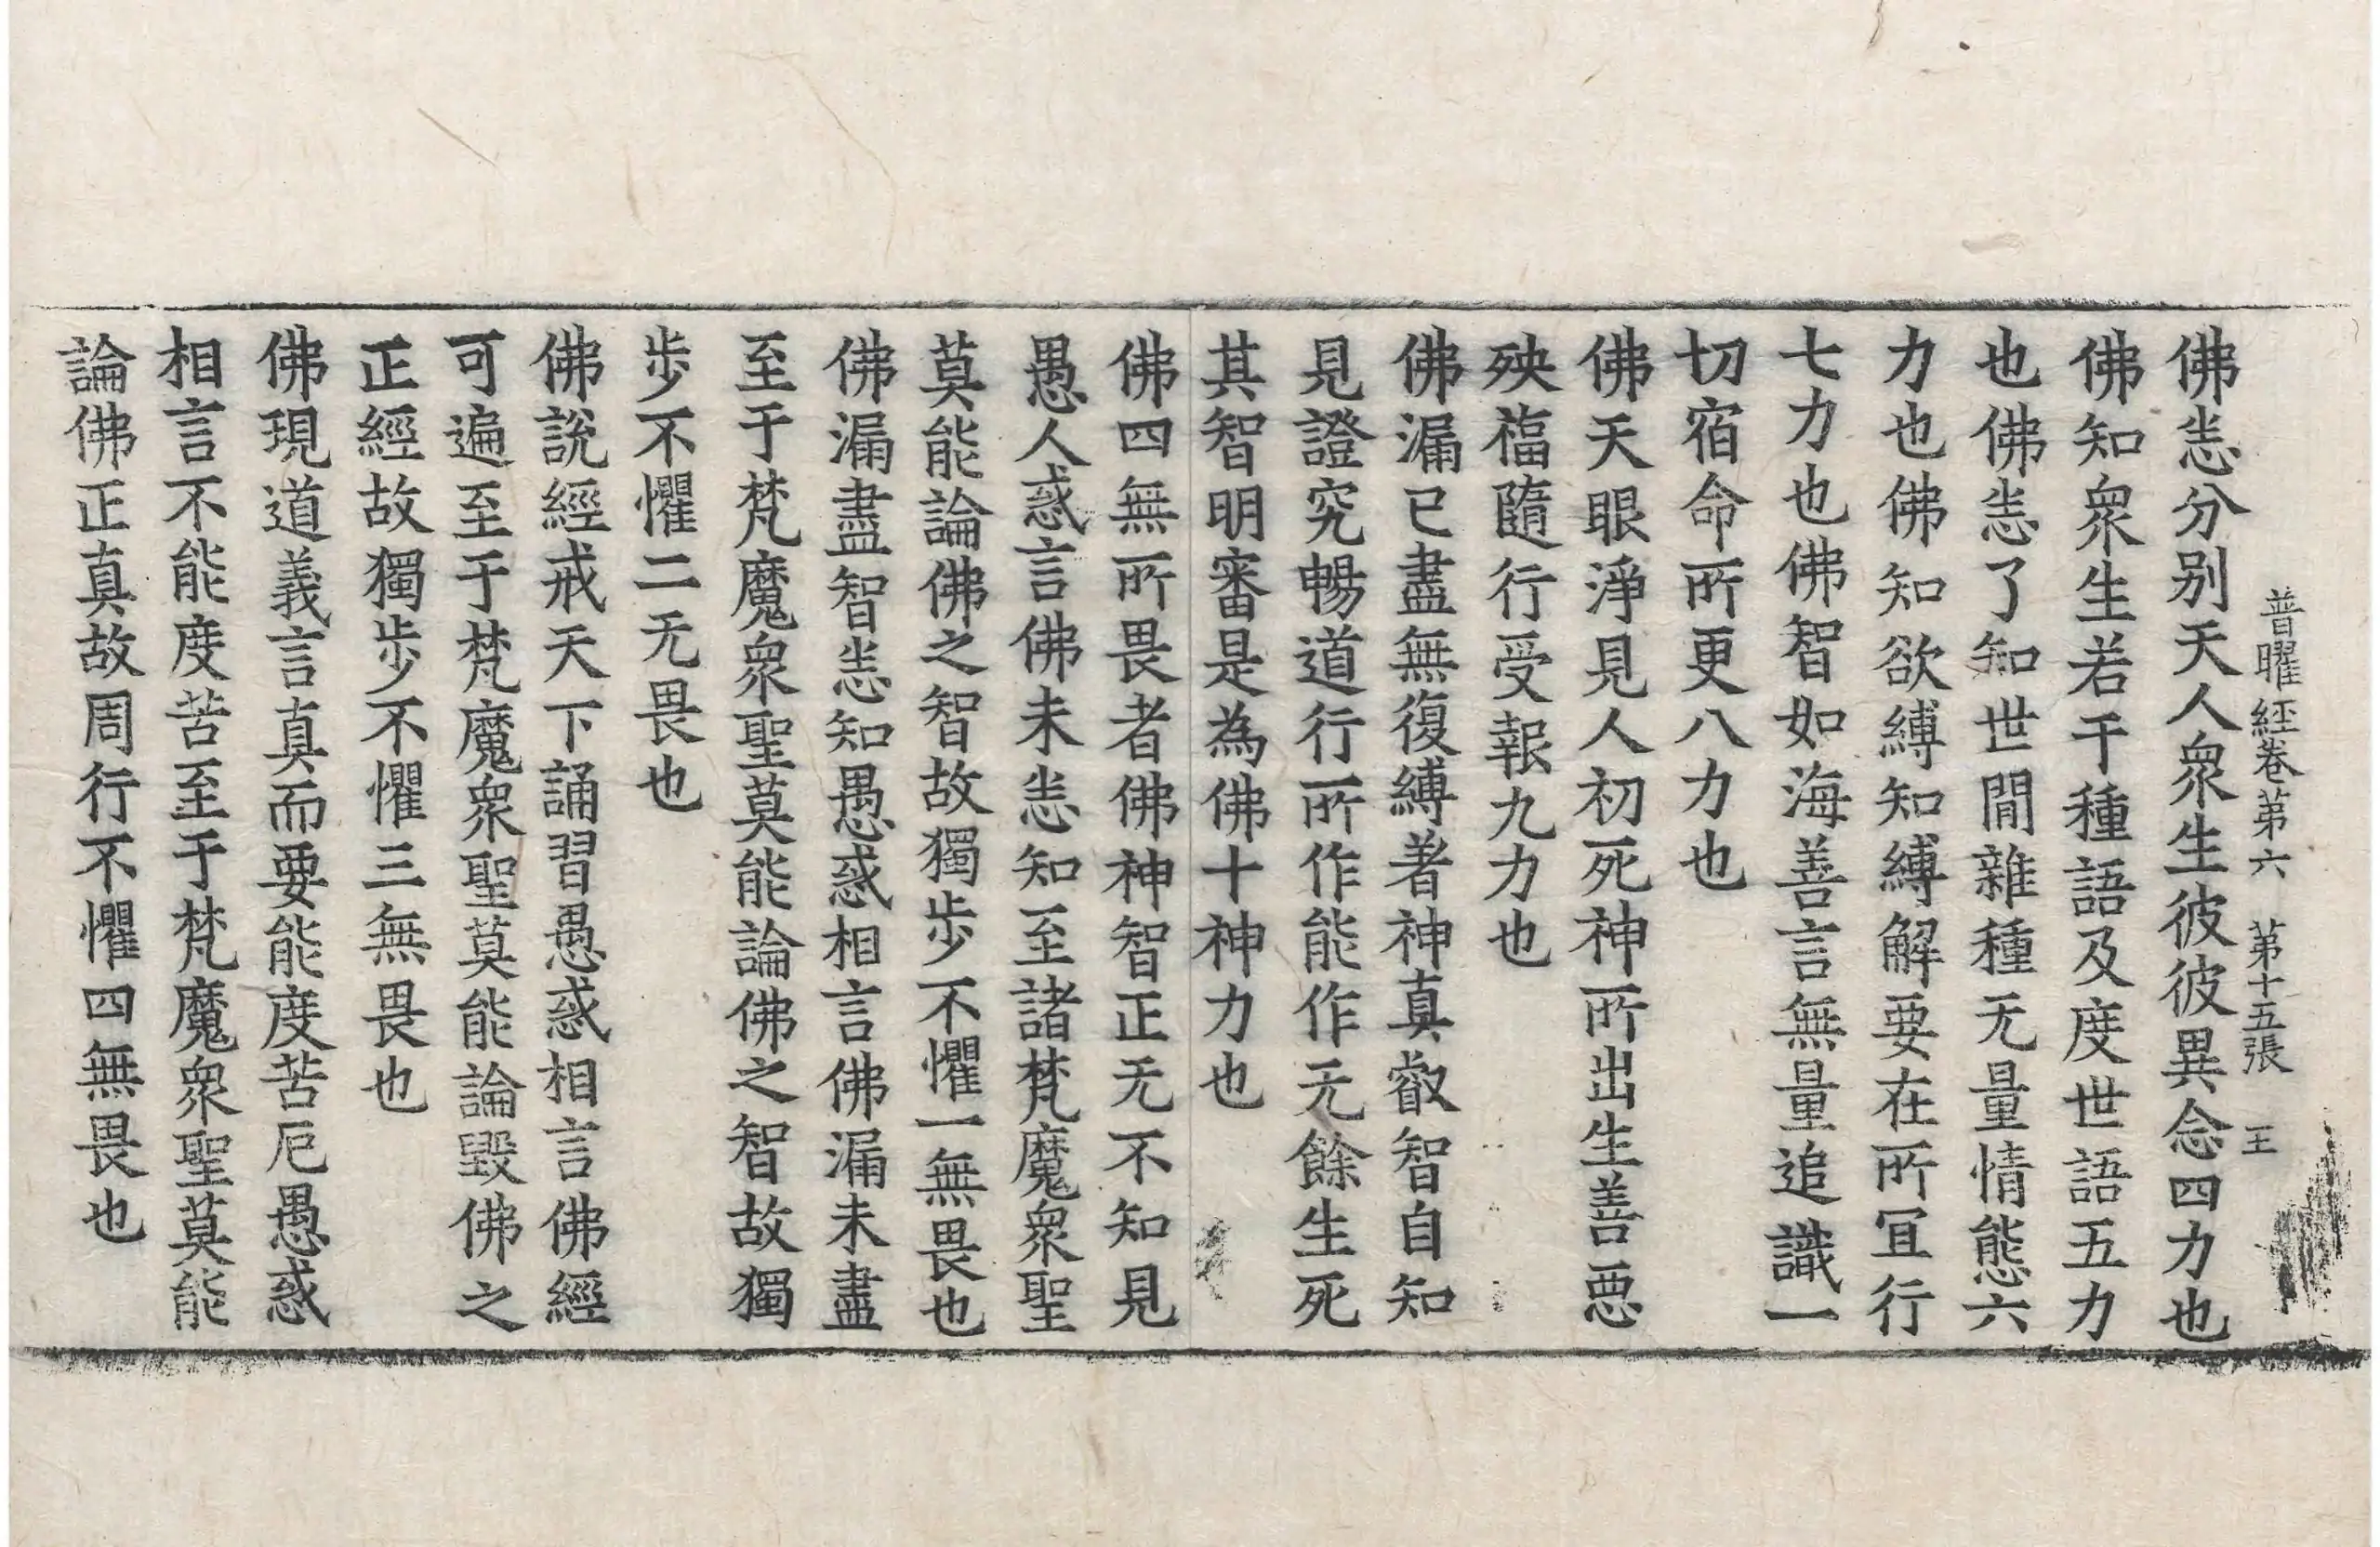 普曜經卷第六 第十五張 王
佛悉分別天人衆生彼彼異念四力也
佛知衆生若干種語及度世語五力
也佛悉了知世間雜種无量情態六
力也佛知欲縛知縛解要在所冝行
七力也佛智如海善言無量追識一
切宿命所更八力也
佛天眼淨見人初死神所出生善惡
殃福隨行受報九力也
佛漏已盡無復縛著神真叡智自知
見證究暢道行所作能作无餘生死
其智明審是為佛十神力也
佛四無所畏者佛神智正无不知見
愚人惑言佛未悉知至諸梵魔衆聖
莫能論佛之智故獨步不懼一無畏也
佛漏盡智悉知愚惑相言佛漏未盡
至于梵魔衆聖莫能論佛之智故獨
步不懼二无畏也
佛說經戒天下誦習愚惑相言佛經
可遍至于梵魔衆聖莫能論毀佛之
正經故獨步不懼三無畏也
佛現道義言真而要能度苦厄愚惑
相言不能度苦至于梵魔衆聖莫能
論佛正真故周行不懼四無畏也